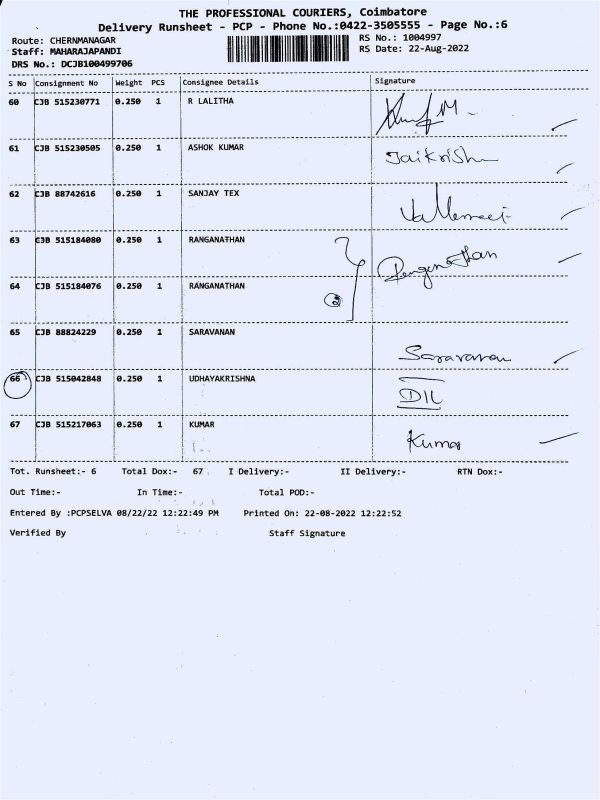 THE PROFESSIONAL COURIERS, Coimbatore
Delivery Runsheet - PCP - Phone No.:0422-3505555 - Page No.:6
Route: CHERNMANAGAR RS No.: 1004997
Staff: MAHARAJAPANDI RS Date: 22-Aug-2022
DRS No.: DCJB100499706
S No Consignment No Weight PCS Consignee Details Signature
60 CJB 515230771 0.250 1 R LALITHA
61 CJB 515230505 0.250 1 ASHOK KUMAR Jaikrish
62 CJB 88742616 0.250 1 SANJAY TEX
63 CJB 515184080 0.250 1 RANGANATHAN Ranganathan
64 CJB 515184076 0.250 1 RANGANATHAN 2
65 CJB 88824229 0.250 1 SARAVANAN Saravanan
66 CJB 515042848 0.250 1 UDHAYAKRISHNA DIL
67 CJB 515217063 0.250 1 KUMAR Kumar
Tot. Runsheet:- 6 Total Dox:- 67 I Delivery:- II Delivery:- RTN Dox:-
Out Time:- In Time:- Total POD:-
Entered By :PCPSELVA 08/22/22 12:22:49 PM Printed On: 22-08-2022 12:22:52
Verified By Staff Signature